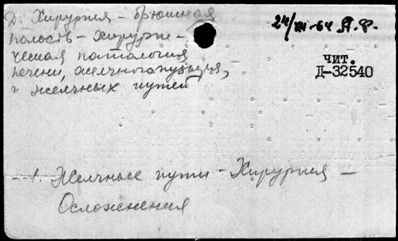 Д. Хирургия - брюшная
полость - хирурги-
ческая патология
печени, желчного пузыря,
и желчных путей
24/III-64 Я.Ф.
чит.
Д-32540
1. Желчные пути - Хирургия -
Осложнения